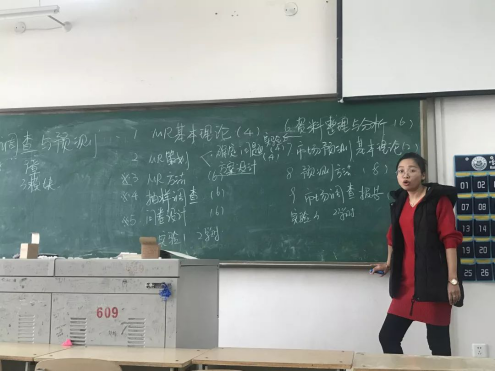 调查与预测
1 MR基本理论(4)
2 MR策划
确定问题
方案设计
※3 MR方法(6
※4 抽样调查(6)
※5 问卷设计(6)
实验1 2学时
6 资料整理与分析(6)
7 市场预测基本理论(2)
8 预测方法(8)
9 市场调查报告
实验2 2学时
609
05
10
14
15
19
20
25
26